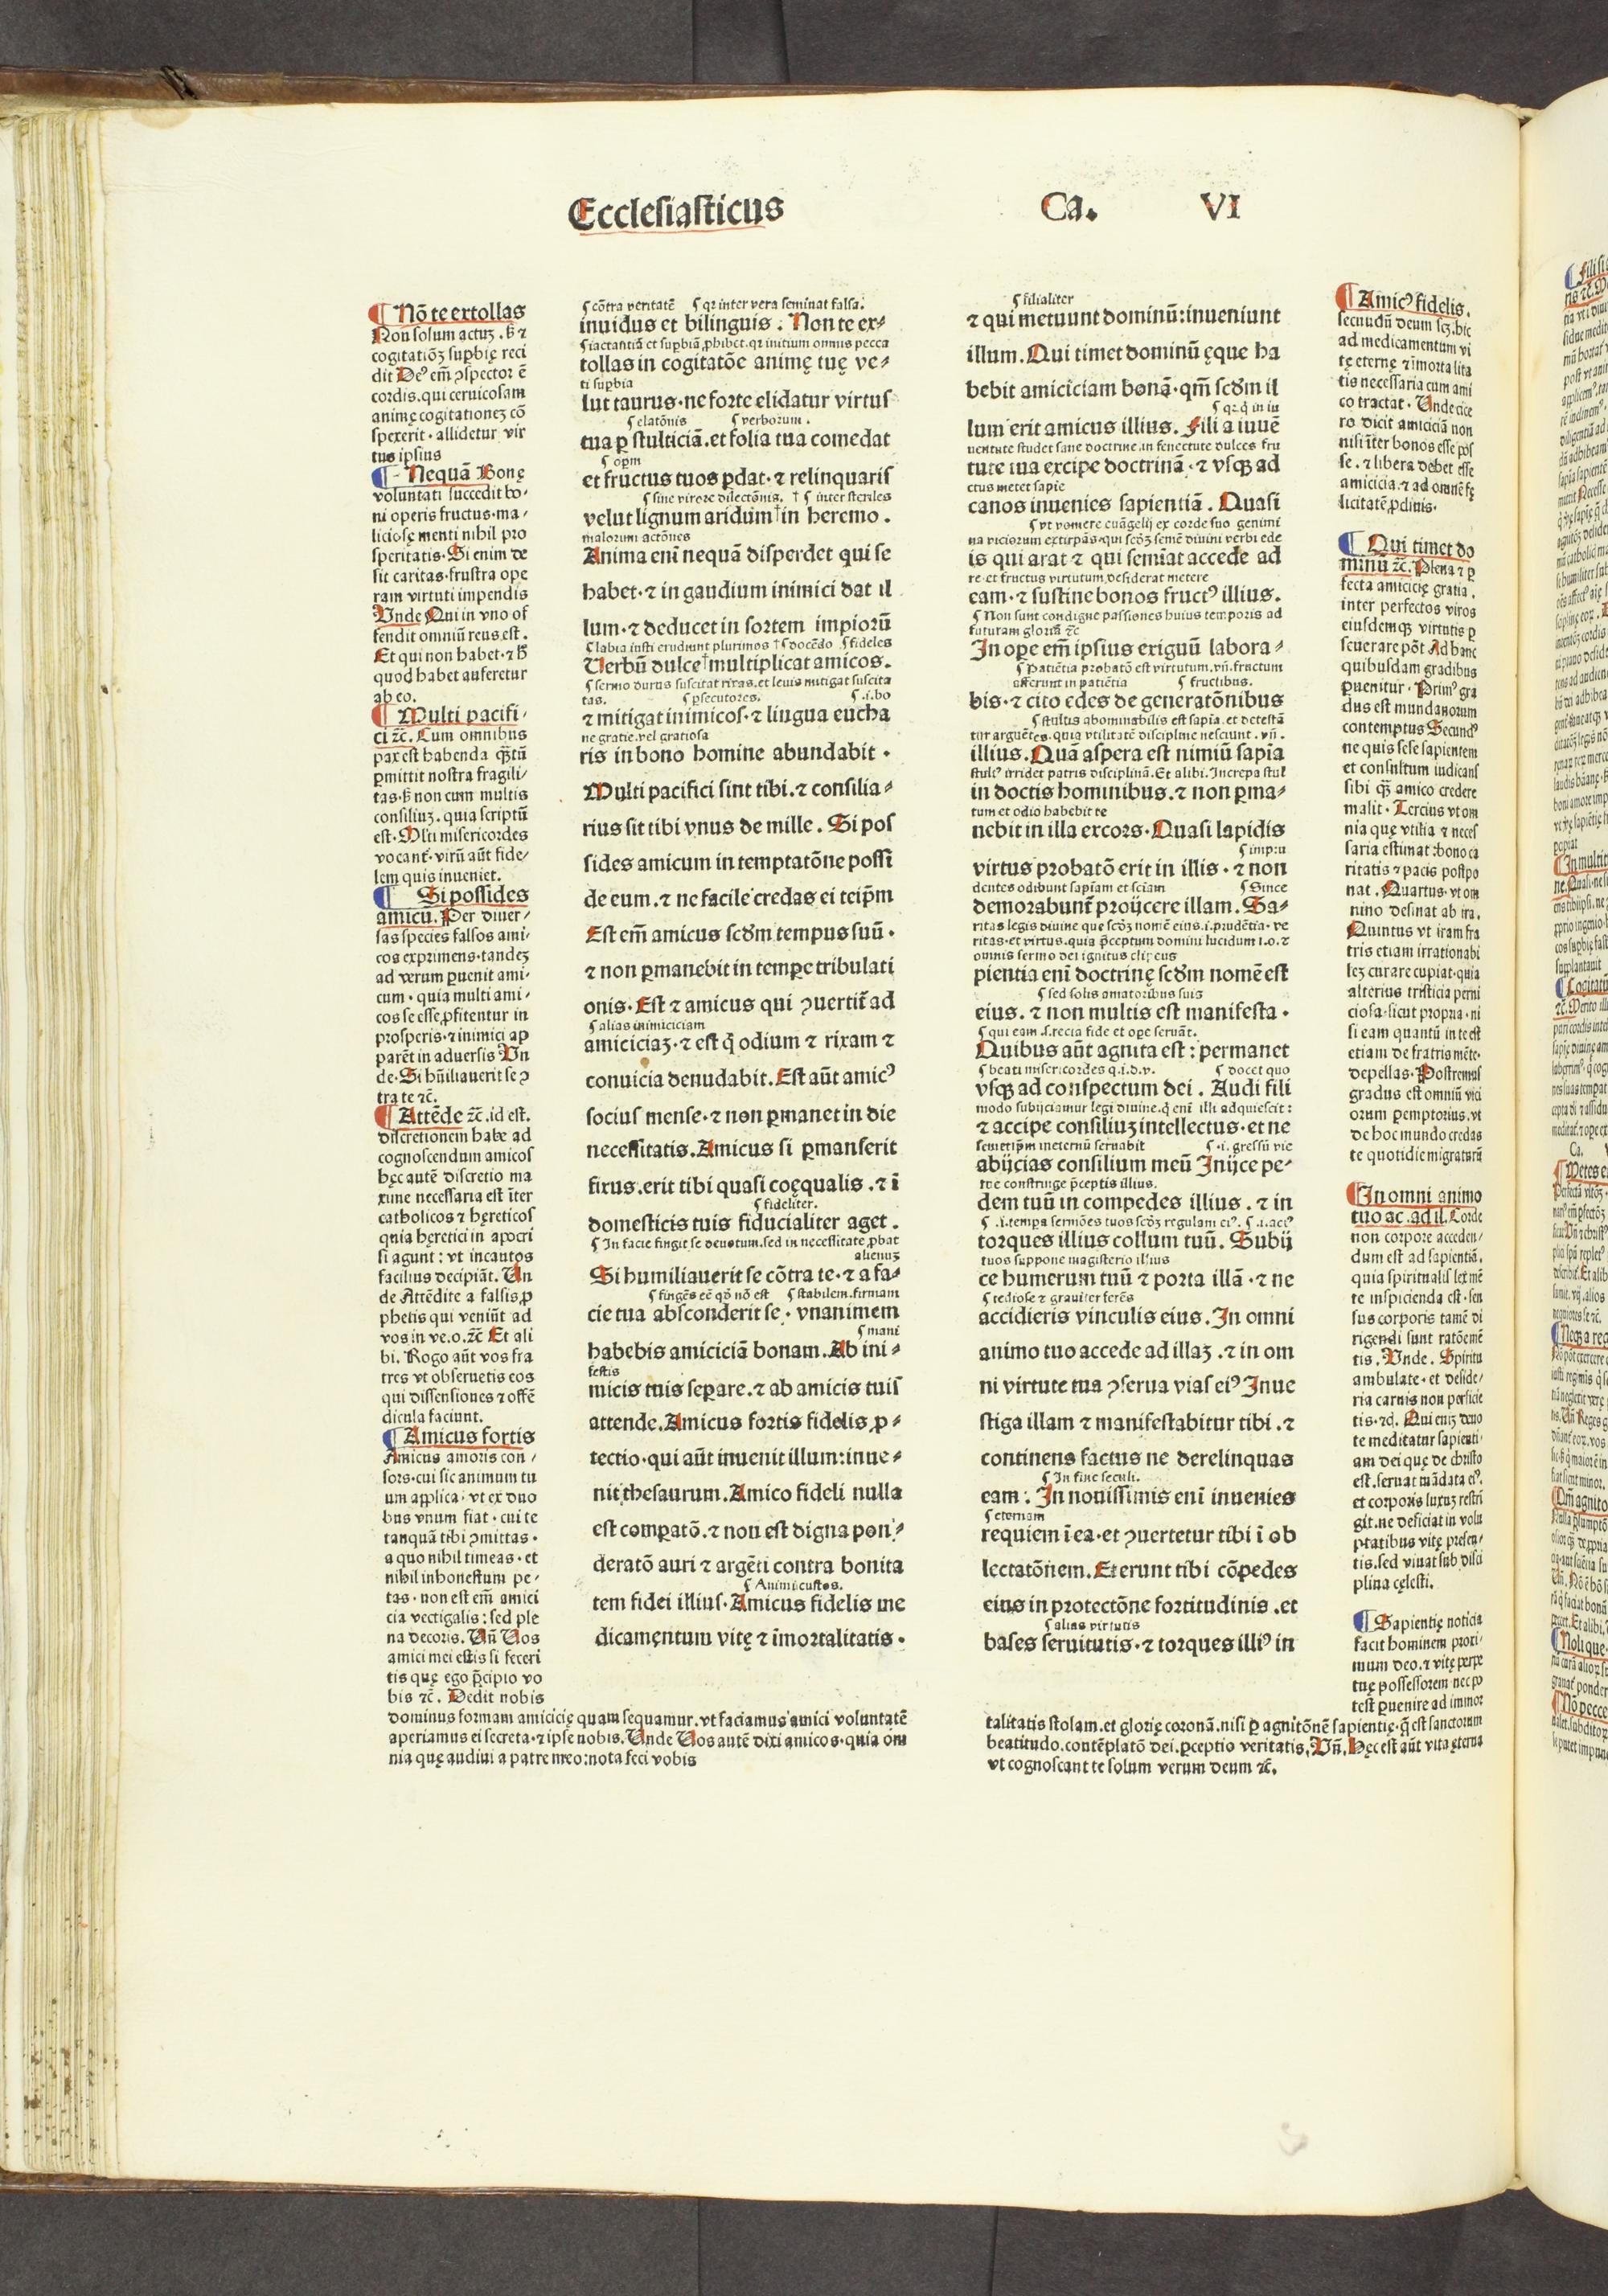 Ecclesiasticus Ca. VI
¶ Nō te extollas
Non solum actuʒ . sꝫ ⁊
cogitatiōʒ supbię reci
dit Deꝰ em̄ ꝯspector ē
cordis . qui ceruicosam
animę cogitationeʒ cō
spexerit · allidetur vir
tus ipsius
¶ Nequā Bonę
voluntati succedit bo-
ni operis fructus · ma-
liciosę menti nihil pro
speritatis · Si enim de
sit caritas · frustra ope
ram virtuti impendis
Unde Qui in vno of
fendit omniū reus est .
Et qui non habet · ⁊ hꝰ
quod habet auferetur
ab eo .
¶ Multi pacifi-
ci ⁊c̄ . Cum omnibus
pax est habenda qꝫtū
ꝑmittit nostra fragili-
tas · sꝫ non cum multis
consiliuʒ . quia scriptū
est · Ml̄ti misericordes
vocant᷑ . virū aūt fide-
lem quis inueniet .
¶ Si possides
amicū . Per diuer-
sas species falsos ami-
cos exprimens · tandeʒ
ad verum ꝑuenit ami-
cum · quia multi ami-
cos se esse ꝓfitentur in
prosperis · ⁊ inimici ap
parēt in aduersis Un
de · Si hūiliauerit se ꝯ
tra te ⁊c̄ .
¶ Attēde ⁊c̄ . id est .
discretionem habe ad
cognoscendum amicos
hęc autē discretio ma
xime necessaria est īter
catholicos ⁊ hęreticos
quia hęretici in apocri
si agunt : vt incautos
facilius decipiāt . Un
de Attēdite a falsis ꝓ
phetis qui veniūt ad
vos in ve . o . ⁊c̄ Et ali
bi . Rogo aūt vos fra
tres vt obseruetis eos
qui dissensiones ⁊ offē
dicula faciunt .
¶ Amicus fortis
Amicus amoris con-
sors · cui sic animum tu
um applica · vt ex duo
bus vnum fiat · cui te
tanquā tibi ꝯmittas ·
a quo nihil timeas · et
nihil inhonestum pe-
tas · non est em̄ amici
cia vectigalis : sed ple
na decoris . Un̄ Uos
amici mei estis si feceri
tis quę ego p̄cipio vo
bis ⁊c̄ . Dedit nobis
dominus formam amicicię quam sequamur . vt faciamus amici voluntatē
aperiamus ei secreta · ⁊ ipse nobis . Unde Uos autē dixi amicos · quia om
nia quę audiui a patre meo : nota feci vobis
¶ cōtra veritatē ¶ qꝛ inter vera seminat falsa .
inuidus et bilinguis . Non te ex-
¶ iactantiā et supbiā ꝓhibet . qꝛ initium omnis pecca
tollas in cogitatōe animę tuę ve-
ti supbia
lut taurus · ne forte elidatur virtus
¶ elatōnis ¶ verborum .
tua ꝑ stulticiā . et folia tua comedat
¶ opm
et fructus tuos ꝑdat · ⁊ relinquaris
¶ sine virore dilectōnis . † ¶ inter steriles
velut lignum aridum † in heremo .
malorum actōnes
Anima enī nequā disperdet qui se
habet · ⁊ in gaudium inimici dat il
lum · ⁊ deducet in sortem impiorū
¶ labia iusti erudiunt plurimos † ¶ docēdo ¶ fideles
Uerbū dulce † multiplicat amicos .
¶ sermo durus suscitat rixas . et leuis mitigat suscita
tas . ¶ ꝑsecutores . ¶ .i. bo
⁊ mitigat inimicos · ⁊ lingua eucha
ne gratie . vel gratiosa
ris in bono homine abundabit .
Multi pacifici sint tibi . ⁊ consilia-
rius sit tibi vnus de mille . Si pos
sides amicum in temptatōne possi
de eum . ⁊ ne facile credas ei teip̄m
Est em̄ amicus scd̄m tempus suū .
⁊ non ꝑmanebit in tempe tribulati
onis · Est ⁊ amicus qui ꝯuertit᷑ ad
¶ alias inimiciciam
amiciciaʒ . ⁊ est q̇ odium ⁊ rixam ⁊
conuicia denudabit . Est aūt amicꝰ
socius mense · ⁊ non ꝑmanet in die
necessitatis . Amicus si ꝑmanserit
fixus . erit tibi quasi coęqualis . ⁊ ī
¶ fideliter .
domesticis tuis fiducialiter aget .
¶ In facie fingit se deuotum . sed in necessitate ꝓbat
alienuʒ
Si humiliauerit se cōtra te · ⁊ a fa-
¶ fingēs eē qđ nō est ¶ stabilem . firmam
cie tua absconderit se . vnanimem
¶ mani
habebis amiciciā bonam . Ab ini-
festis
micis tuis separe . ⁊ ab amicis tuis
attende . Amicus fortis fidelis ꝓ-
tectio · qui aūt inuenit illum : inue-
nit thesaurum . Amico fideli nulla
est compatō . ⁊ non est digna pon-
deratō auri ⁊ argēti contra bonita
¶ Animi custos .
tem fidei illius · Amicus fidelis me
dicamentum vitę ⁊ īmortalitatis .
¶ filialiter
⁊ qui metuunt dominū : inueniunt
illum . Qui timet dominū ęque ha
bebit amiciciam bonā · qm̄ scd̄m il
¶ qꝛ q̇ in iu
lum erit amicus illius . Fili a iuuē
uentute studet sane doctrine . in senectute dulces fru
tute tua excipe doctrinā . ⁊ vsqꝫ ad
ctus metet sapie
canos inuenies sapientiā . Quasi
¶ vt vomere euāgelij ex corde suo genimi
na viciorum extirpās · qui scd̄ʒ semē diuini verbi ede
is qui arat ⁊ qui semiat accede ad
re · et fructus virtutum desiderat metere
eam . ⁊ sustine bonos fructꝰ illius .
¶ Non sunt condigne passiones huius temporis ad
futuram gloriā ⁊c̄
In ope em̄ ipsius exiguū labora-
¶ Patiētia probatō est virtutum . vn̄ . fructum
afferunt in patiētia ¶ fructibus .
bis . ⁊ cito edes de generatōnibus
¶ stultus abominabilis est sapīa . et detestā
tur arguētes . quia vtilitatē discipline nesciunt . vn̄ .
illius . Quā aspera est nimiū sapīa
stultꝰ irridet patris disciplinā . Et alibi . Increpa stul
in doctis hominibus . ⁊ non ꝑma-
tum et odio habebit te
nebit in illa excors . Quasi lapidis
¶ impru
virtus probatō erit in illis . ⁊ non
dentes odibunt sapīam et sciam ¶ Since
demorabunt᷑ proijcere illam . Sa-
ritas legis diuine que scd̄ʒ nomē eius . i . prudētia . ve
ritas · et virtus . quia p̄ceptum domini lucidum i . o . ⁊
omnis sermo dei ignitus clipeus
pientia enī doctrinę scd̄m nomē est
¶ sed solis amatoribus suis
eius . ⁊ non multis est manifesta .
¶ qui eam .s. recta fide et ope seruāt .
Quibus aūt agnita est : permanet
¶ beati misericordes q . i . d . v . ¶ docet quo
vsqꝫ ad conspectum dei . Audi fili
modo subijciamur legi diuine . q̇ enī illi adquiescit :
⁊ accipe consiliuʒ intellectus . et ne
semetip̄m in eternū seruabit ¶ .i. gressū vie
abijcias consilium meū Inijce pe-
tue constringe p̄ceptis illius .
dem tuū in compedes illius . ⁊ in
¶ .i. tempa sermōes tuos scd̄ʒ regulam eiꝰ . ¶ .i. actꝰ
torques illius collum tuū . Subij
tuos suppone magisterio illius
ce humerum tuū ⁊ porta illā . ⁊ ne
¶ tediose ⁊ grauiter ferēs
accidieris vinculis eius . In omni
animo tuo accede ad illaʒ . ⁊ in om
ni virtute tua ꝯserua vias eiꝰ Inue
stiga illam ⁊ manifestabitur tibi . ⁊
continens factus ne derelinquas
¶ In fine seculi .
eam : In nouissimis enī inuenies
¶ eternam
requiem ī ea · et ꝯuertetur tibi ī ob
lectatōnem . Et erunt tibi cōpedes
eius in protectōne fortitudinis . et
¶ alias virtutis
bases seruitutis . ⁊ torques illiꝰ in
¶ Amicꝰ fidelis .
secundū deum scʒ . hic
ad medicamentum vi
tę eternę ⁊ īmortalita
tis necessaria cum ami
co tractat · Unde cice
ro dicit amiciciā non
nisi īter bonos esse pos
se . ⁊ libera debet esse
amicicia . ⁊ ad omnē fę
licitatē ꝑdinis .
¶ Qui timet do
minū ⁊c̄ . Plena ⁊ ꝑ
fecta amicicię gratia .
inter perfectos viros
eiusdemqꝫ virtutis ꝑ
seuerare pōt Ad hanc
quibusdam gradibus
ꝑuenitur . Primꝰ gra
dus est mundanorum
contemptus Secundꝰ
ne quis sese sapientem
et consultum iudicans
sibi qꝫ amico credere
malit . Tercius vt om
nia quę vtilia ⁊ neces
saria estimat : bono ca
ritatis ⁊ pacis postpo
nat . Quartus . vt om
nino desinat ab ira .
Quintus vt iram fra
tris etiam irrationabi
leʒ curare cupiat · quia
alterius tristicia perni
ciosa · sicut propria . ni
si eam quantū in te est
etiam de fratris mēte .
depellas . Postremus
gradus est omniū vici
orum ꝑemptorius . vt
de hoc mundo credas
te quotidie migraturū
¶ In omni animo
tuo ac . ad il . Corde
non corpore acceden-
dum est ad sapientiā .
quia spiritualis lex mē
te inspicienda est · sen
sus corporis tamē di
rigendi sunt ratōe mē
tis . Unde . Spiritu
ambulate . et deside-
ria carnis non perficie
tis . ⁊c̄ . Qui eniʒ deuo
te meditatur sapienti-
am dei que de christo
est . seruat mādata eiꝰ .
et corporis luxuʒ restrī
git . ne deficiat in volu
ptatibus vitę presen-
tis . sed viuat sub disci
plina cęlesti .
¶ Sapientię noticia
facit hominem proxi-
mum deo . ⁊ vitę perpe
tuę possessorem nec po
test ꝑuenire ad immor
talitatis stolam . et glorię coronā . nisi ꝑ agnitōnē sapientię . q̄ est sanctorum
beatitudo . contēplatō dei . ꝑceptio veritatis . Un̄ . Hęc est aūt vita ęterna
vt cognoscant te solum verum deum ⁊c̄ .